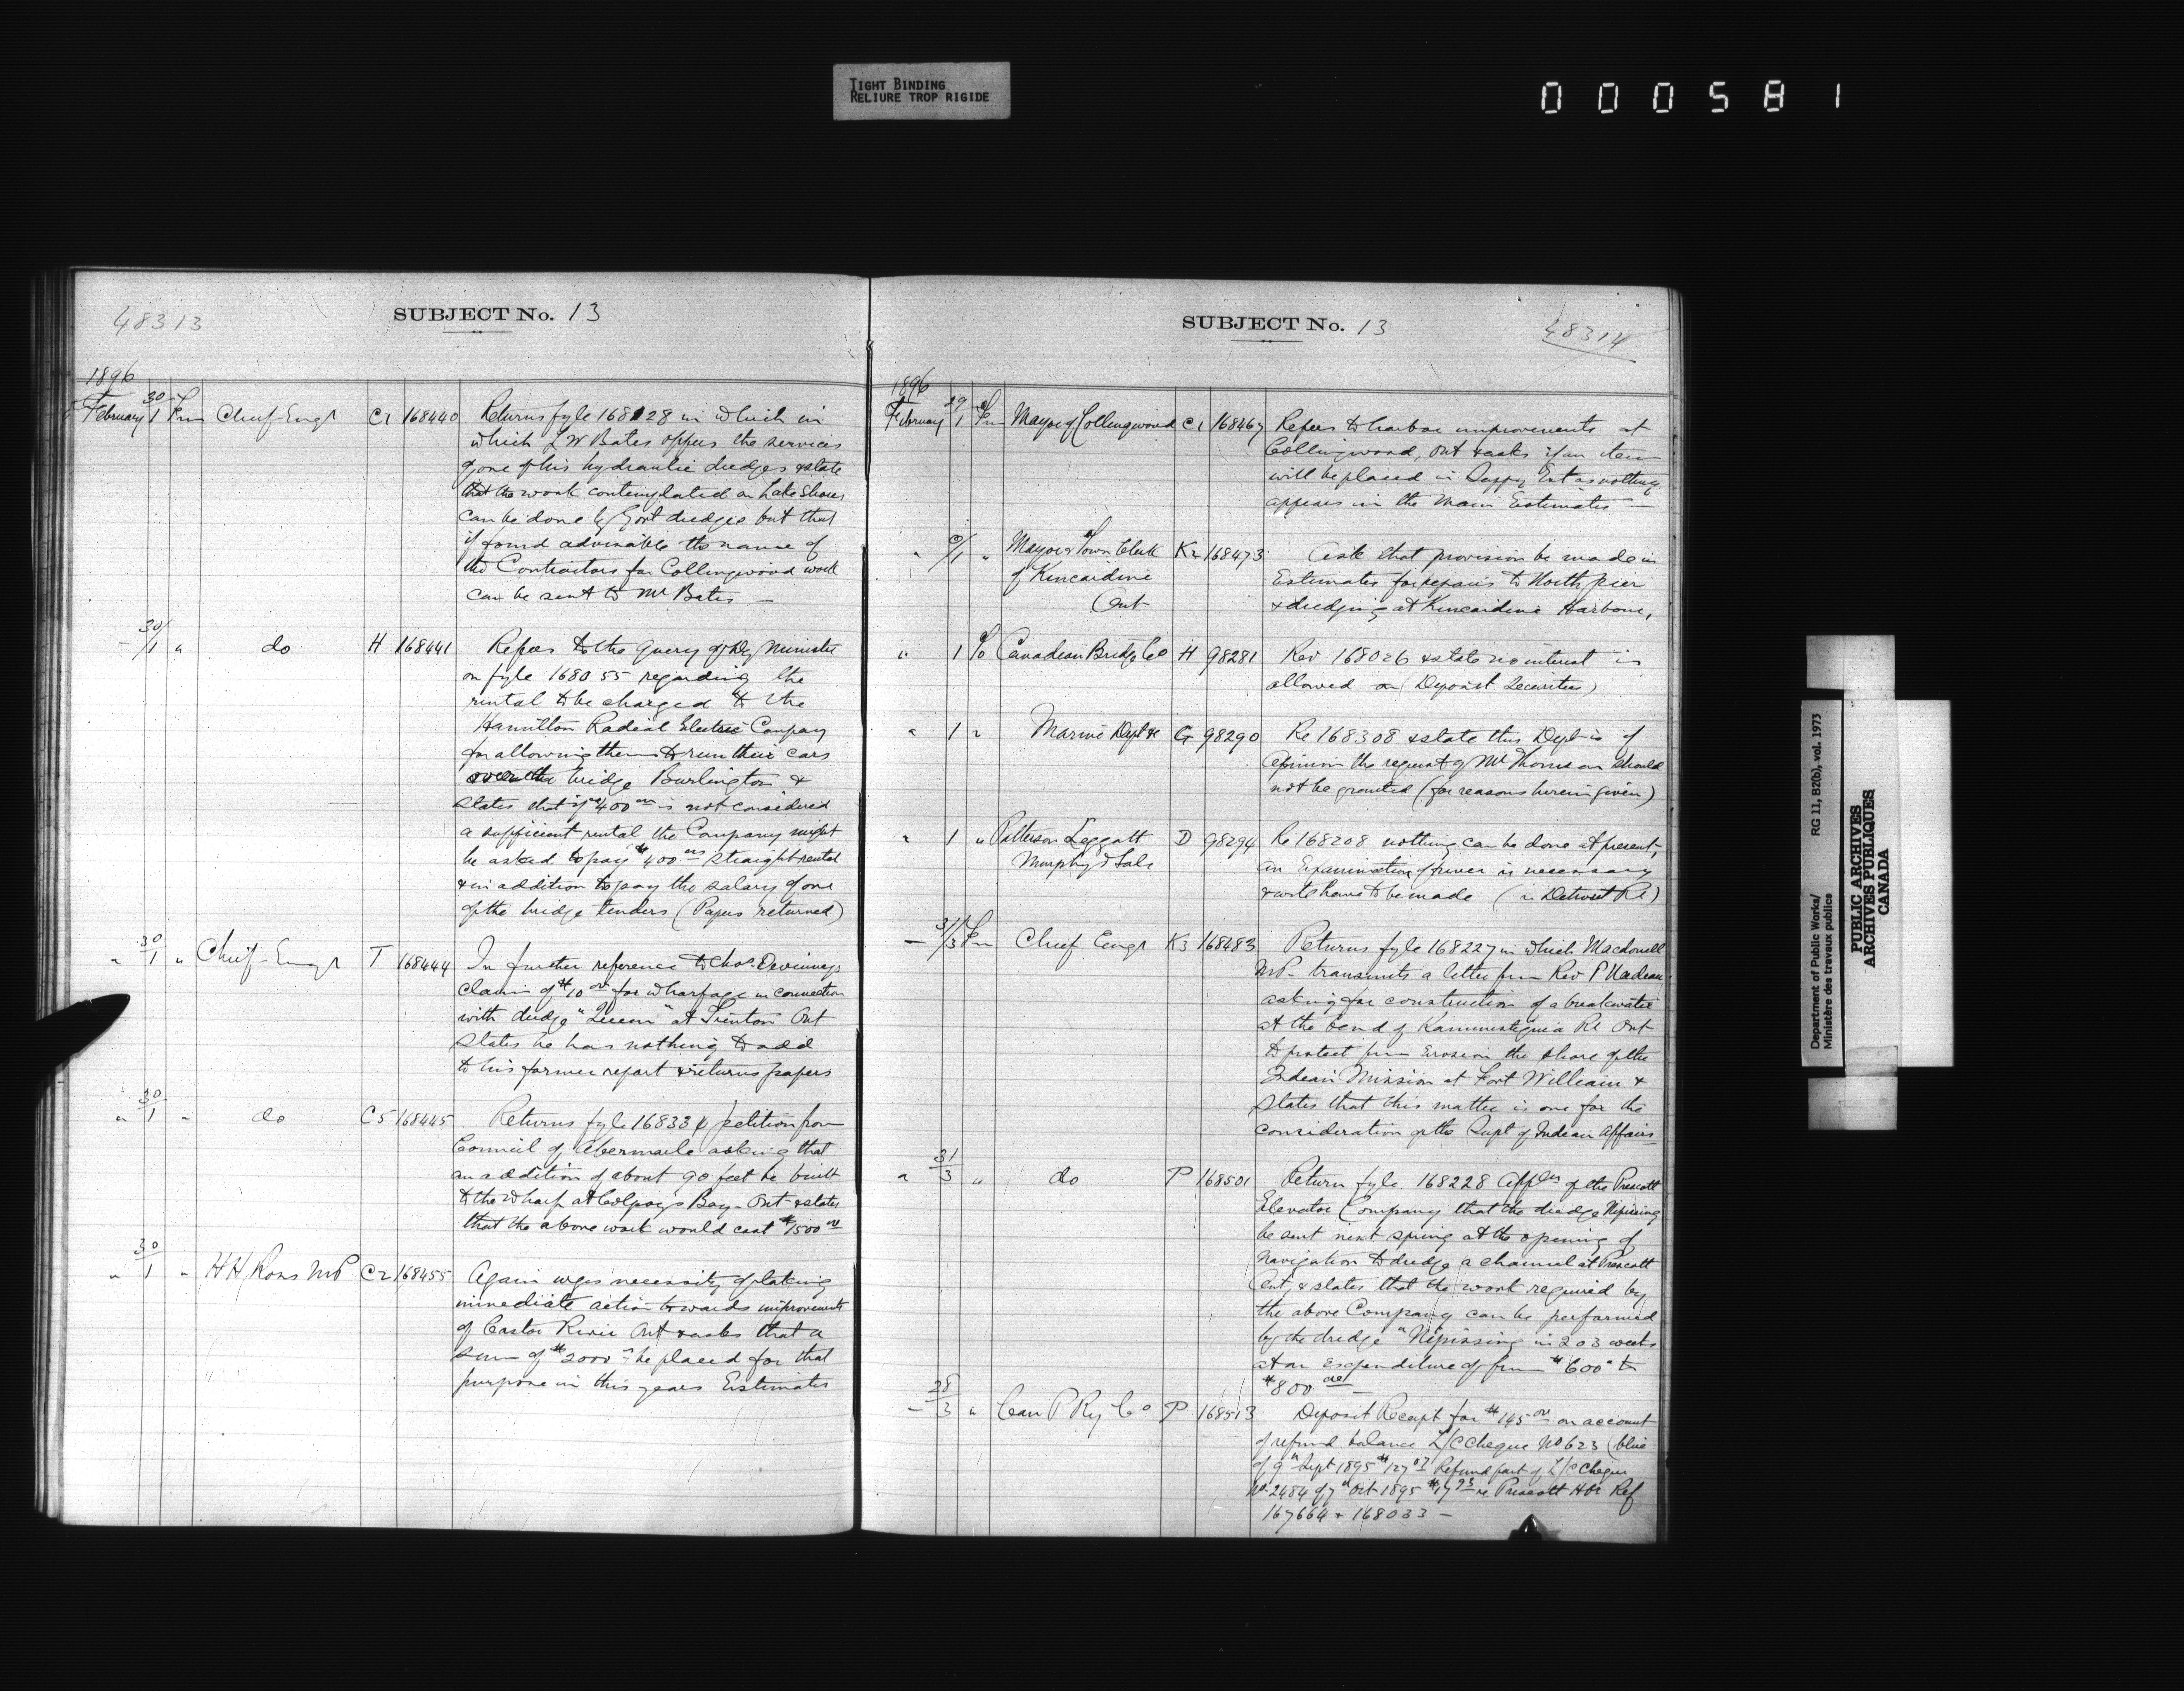 TIGHT BINDING
RELIURE TROP RIGIDE
000581
48313
SUBJECT No. 13
1896
February 30/1 Fm Chief Engr C1 168440 Returns fyle 168128 in which in
which L W Bates offers the services
of one of his hydraulic dredges & state
that the work contemplated on Lake Shores
can be done by Govt dredges but that
if found advisable the name of
the Contractors for Collingwood work
can be sent to Mr Bates —
" 30/1 " do H 168441 Refers to the query of Dy Minister
on fyle 168055 regarding the
rental to be charged to the
Hamilton Radial Electric Company
for allowing them to run their cars
over the bridge Burlington &
states that if $400 00 is not considered
a sufficient rental the Company might
be asked to pay $400 00 straight rental
& in addition to pay the salary of one
of the bridge tenders (Papers returned)
" 30/1 " Chief Engr T 168444 In further reference to Chas Devinneys
claim of $10 00 for wharfage in connection
with dredge "Queen" at Trenton Ont
States he has nothing to add
to his former report & returns papers
" 30/1 " do C5 168445 Returns fyle 168334 petition from
Council of Abermarle asking that
an addition of about 90 feet be built
to the wharf at Colpoy's Bay Ont & states
that the above work would cost $1500 00
" 30/1 " H H Ross MP C2 168455 Again urges necessity of taking
immediate action towards improvements
of Castor River Ont & asks that a
sum of $2000 be placed for that
purpose in this years Estimates
SUBJECT No. 13
48314
1896
February 29/1 Fm Mayor of Collingwood C1 168467 Refers to harbor improvements at
Collingwood, Ont & asks if an item
will be placed in Suppy Est as nothing
appears in the Main Estimates —
" /1 " Mayor & Town Clerk K2 168473 Ask that provision be made in
of Kincardine Estimates for repairs to North pier
Ont & dredging at Kincardine Harbour,
" 1 To Canadian Bridge Co H 98281 Rev. 168026 & state no interest is
allowed on (Deposit Securities)
" 1 " Marine Dept G 98290 Re 168308 & state this Dept is of
opinion the request of Mr Thomson should
not be granted (for reasons herein given)
" 1 " Patterson Leggatt D 98294 Re 168208 nothing can be done at present,
Murphy & Sale an Examination of river is necessary
& will have to be made (in Detroit Rr)
— 31/3 Fm Chief Engr K3 168483 Returns fyle 168227 in which Macdowell
MP transmits a letter from Rev P Nadeau
asking for construction of a breakwater
at the bend of Kaministiquia Rr Ont
to protect from Erosion the shore of the
Indian Mission at Fort William &
states that this matter is one for the
consideration of the Supt of Indian Affairs
" 31/3 " do P 168501 Return fyle 168228 Appln of the Prescott
Elevator Company that the dredge Nipissing
be sent next spring at the opening of
Navigation to dredge a channel at Prescott
Ont, & states that the work required by
the above Company can be performed
by the dredge "Nipissing in 2 o 3 weeks
at an expenditure of from $600 to
$800 00 —
— 28/3 " Can P Ry Co P 168513 Deposit Receipt for $145 00 on account
of refund balance L/C Cheque No 623 (blue
of 9th Sept 1895 $127 07 Refund part of L/C Cheque
No. 2484 of 7th Oct 1895 $17 93 re Prescott Hbr Ref
167664 & 168033 —
Department of Public Works/ RG 11, B2(b), vol. 1973
Ministère des travaux publics
PUBLIC ARCHIVES
ARCHIVES PUBLIQUES
CANADA